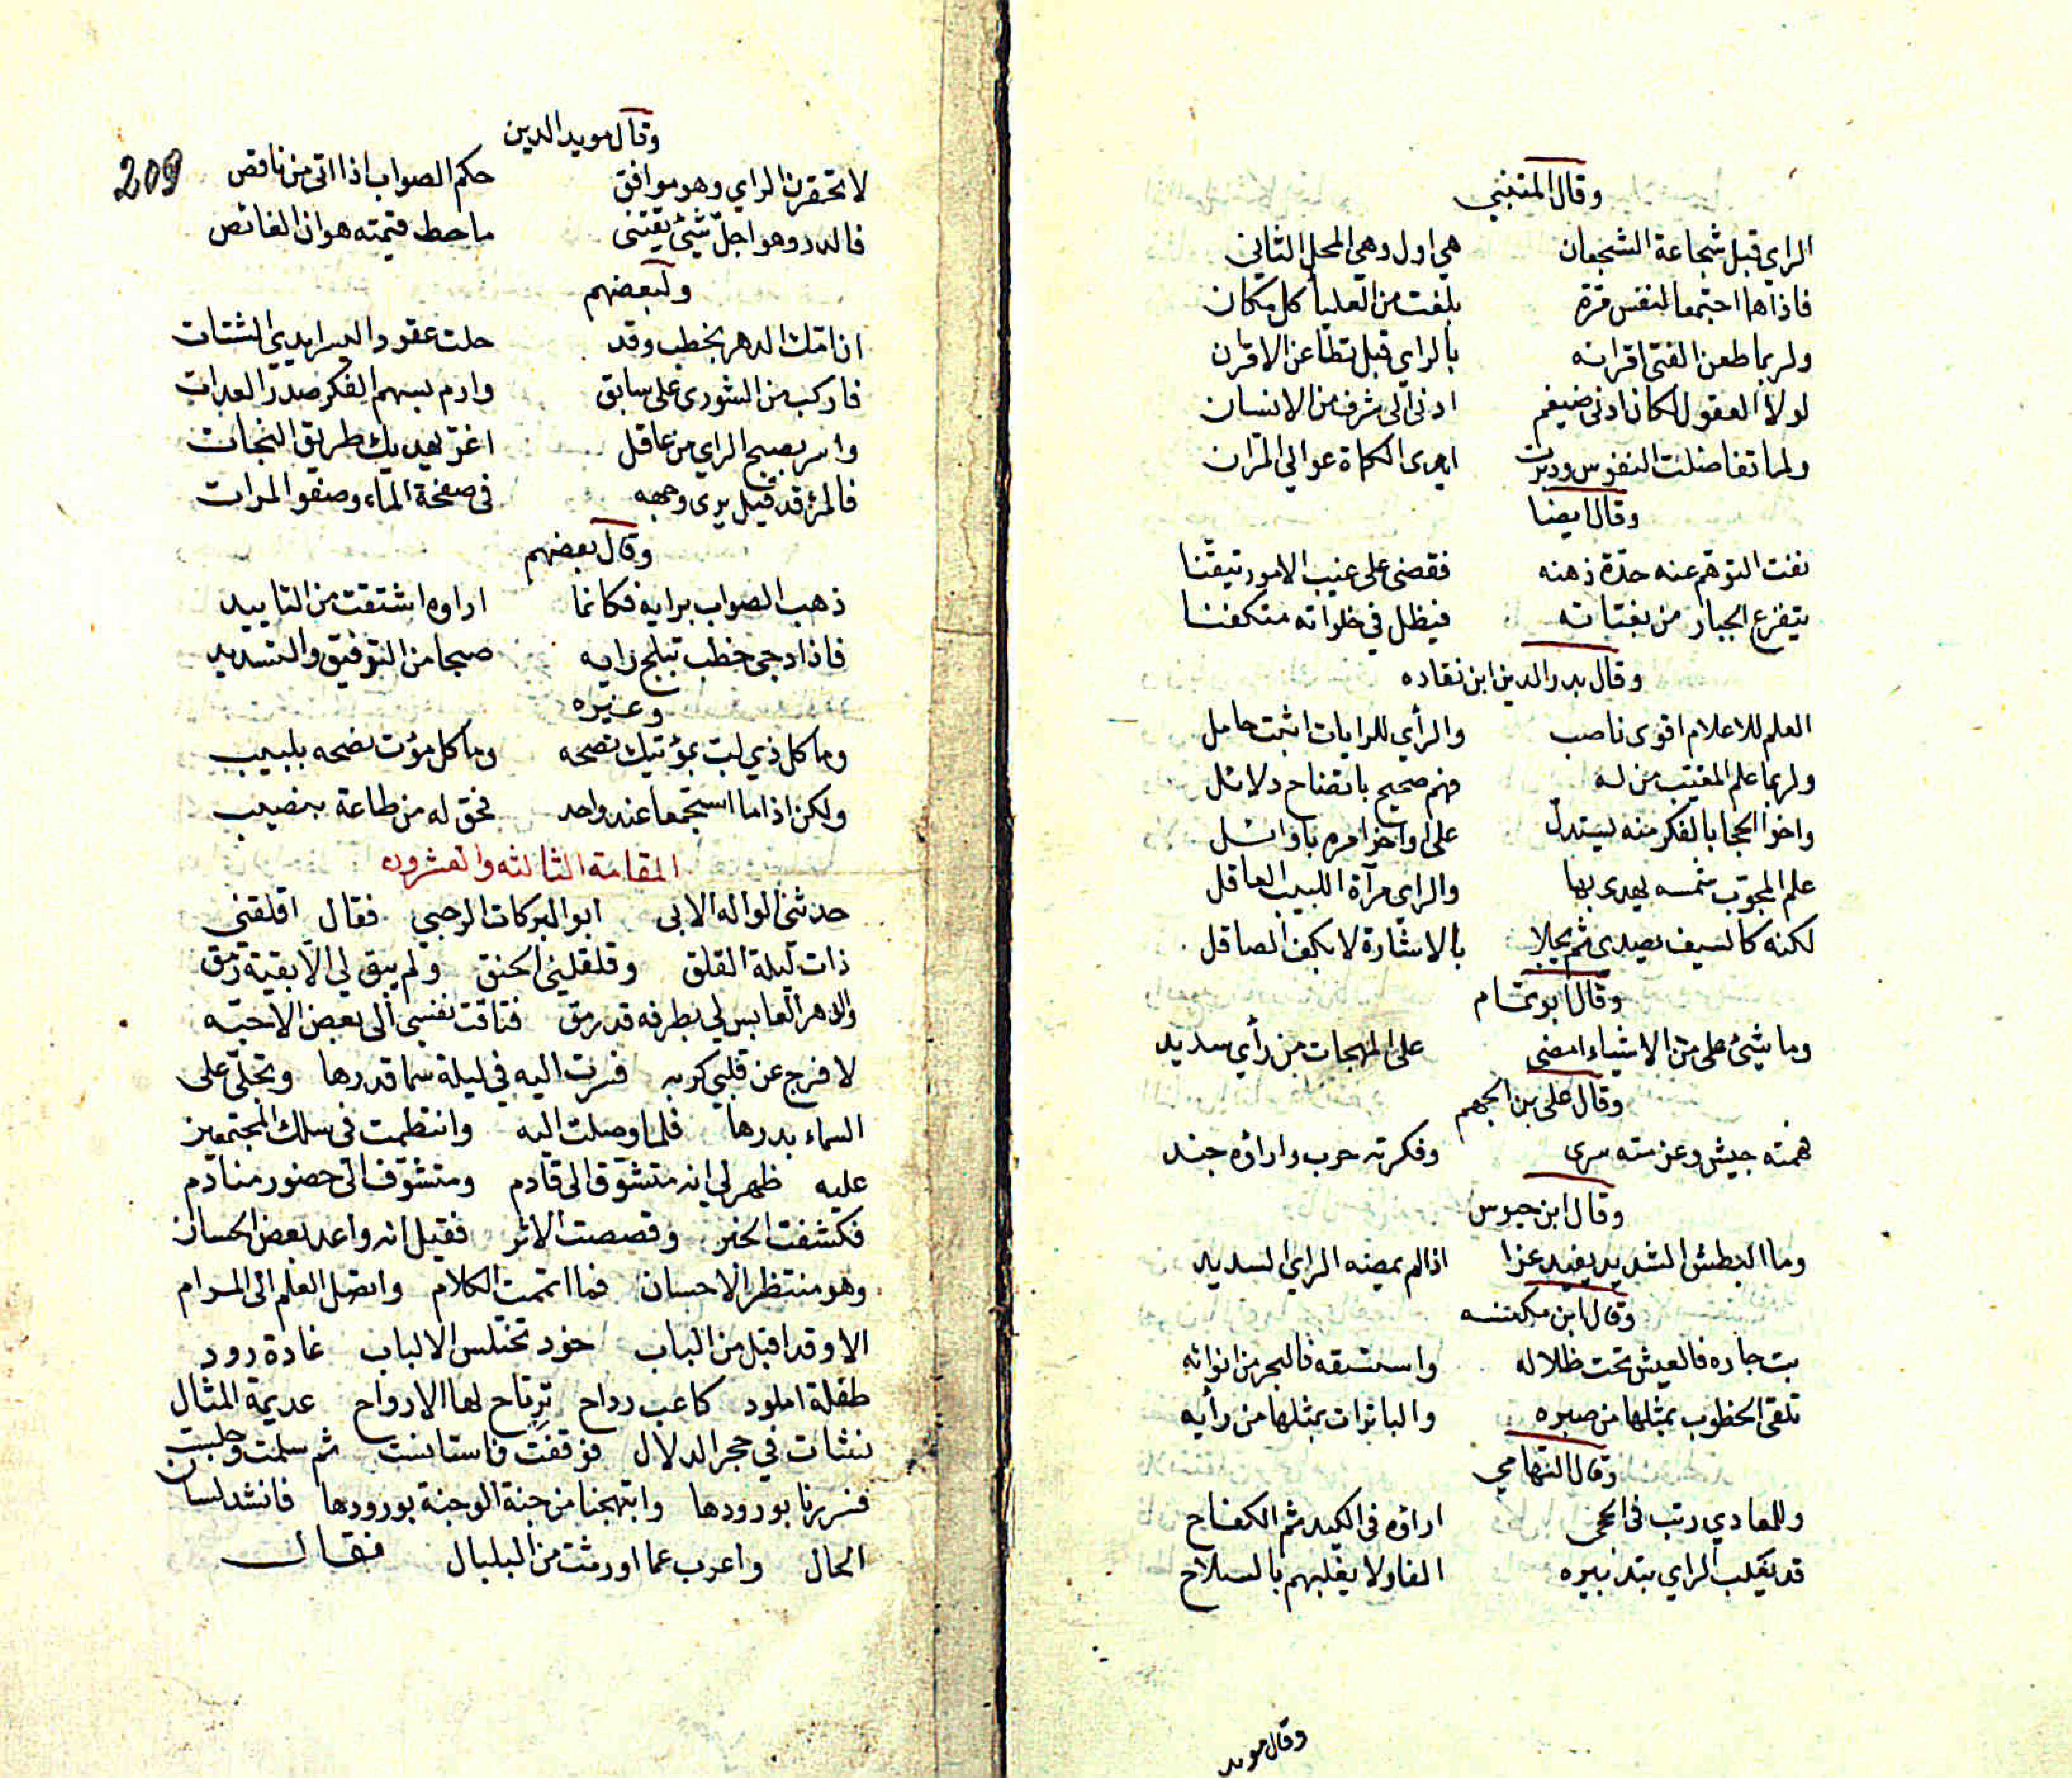 وقال المتنبي
الراي قبل شجاعة الشجعان هي اول وهي المحل الثاني
فاذا هما اجتمعا لنفس مرة بلغت من العلياء كل مكان
ولربما طعن الفتى اقرانه بالراي قبل تطاعن الاقران
لولا العقول لكان ادنى ضيغم ادنى الى شرف من الانسان
ولما تفاضلت النفوس ودبرت ايدى الكماة عوالي المران
وقال ايضا
نفت التوهم عنه حدة ذهنه فقضى على غيب الامور تيقنا
يتفزع الجبار من بغتاته فيظل في خلواته متكفنا
وقال بدر الدين ابن نقاده
العلم للاعلام اقوى ناصب والرأي للرايات اثبت حامل
ولربما علم المغيب من له فهم صحيح باتضاح دلائل
واخوا الحجا بالفكر منه ليستدل على اواخر امره باوائل
علم المجرب شمسه يهدى بها والراي مرآة اللبيب العاقل
لكنه كالسيف يصدى ثم يجلا بالاشارة لا بكف الصاقل
وقال ابو تمام
وما شيئ على من الاشياء امضى على المهجات من رأي سديد
وقال على بن الجهم
همته جيش وعزمته سرى وفكرته حرب واراؤه جند
وقال ابن حيوس
وما البطش الشديد يفيد عزا اذا لم يمضه الراي السديد
وقال ابن مكنسه
بت جاره فالعيش تحت ظلاله واستسقه فالبحر من انوائه
تلقى الخطوب بمثلها من صبره والباترات بمثلها من رأيه
وقال التهامي
وللمعادي رتب في الحجى اراؤه في الكيد ثم الكفاح
قد يغلب الراي بتدبيره الفا ولا يغلبهم بالسلاح
وقال مويد
209
وقال مويد الدين
لا تحقرن الراي وهو موافق حكم الصواب اذا اتى من ناقص
فالدر وهو اجل شيئ يقتنى ما حط قيمته هوان الغائص
ولبعضهم
ان امتك الدهر بخطب وقد حلت عقود الصبر ايدى الشتات
فاركب من الشورى على سابق وارم بسهم الفكر صدر العداة
واسر بصبح الراي من عاقل اغر يهديك طريق النجات
فالمرؤ قد قيل يرى وجهه في صفحة الماء وصفو المرات
وقال بعضهم
ذهب الصواب برايه فكانما اراوه اشتقت من التاييد
فاذا دجى خطب تبلج رايه صبحا من التوفيق والتسديد
وغيره
وما كل ذي لب بمؤتيك نصحه وما كل مؤت نصحه بلبيب
ولكن اذا ما استجمعا عند واحد فحق له من طاعة بنصيب
المقامة الثالثه والعشرون
حدثنى الواله الابى ابو البركات الرحبي فقال اقلقنى
ذات ليلة القلق وقلقلني الحنق ولم يبق لي الا بقية رمق
والدهر العابس لي بطرفه قد رمق فتاقت نفسي الى بعض الاحبه
لافرج عن قلبي كربه فسرت اليه في ليلة سما قدرها وتجلى على
السماء بدرها فلما وصلت اليه وانتظمت في سلك المجتمعين
عليه ظهر لي انه متشوق الى قادم ومتشوف الى حضور منادم
فكشفت الخبر وقصصت الاثر فقيل انه واعد بعض الحسان
وهو منتظر الاحسان فما اتممت الكلام واتصل العلم الى المرام
الا وقد اقبل من الباب خود تختلس الالباب غادة رود
طفلة املود كاعب رداح ترتاح لها الارواح عديمة المثال
نشات في حجر الدلال فوقفت واستانست ثم سلمت وجلست
فسررنا بورودها وابتهجنا من جنة الوجنة بورودها فانشد لسان
الحال واعرب عما اورثت من البلبال فقال